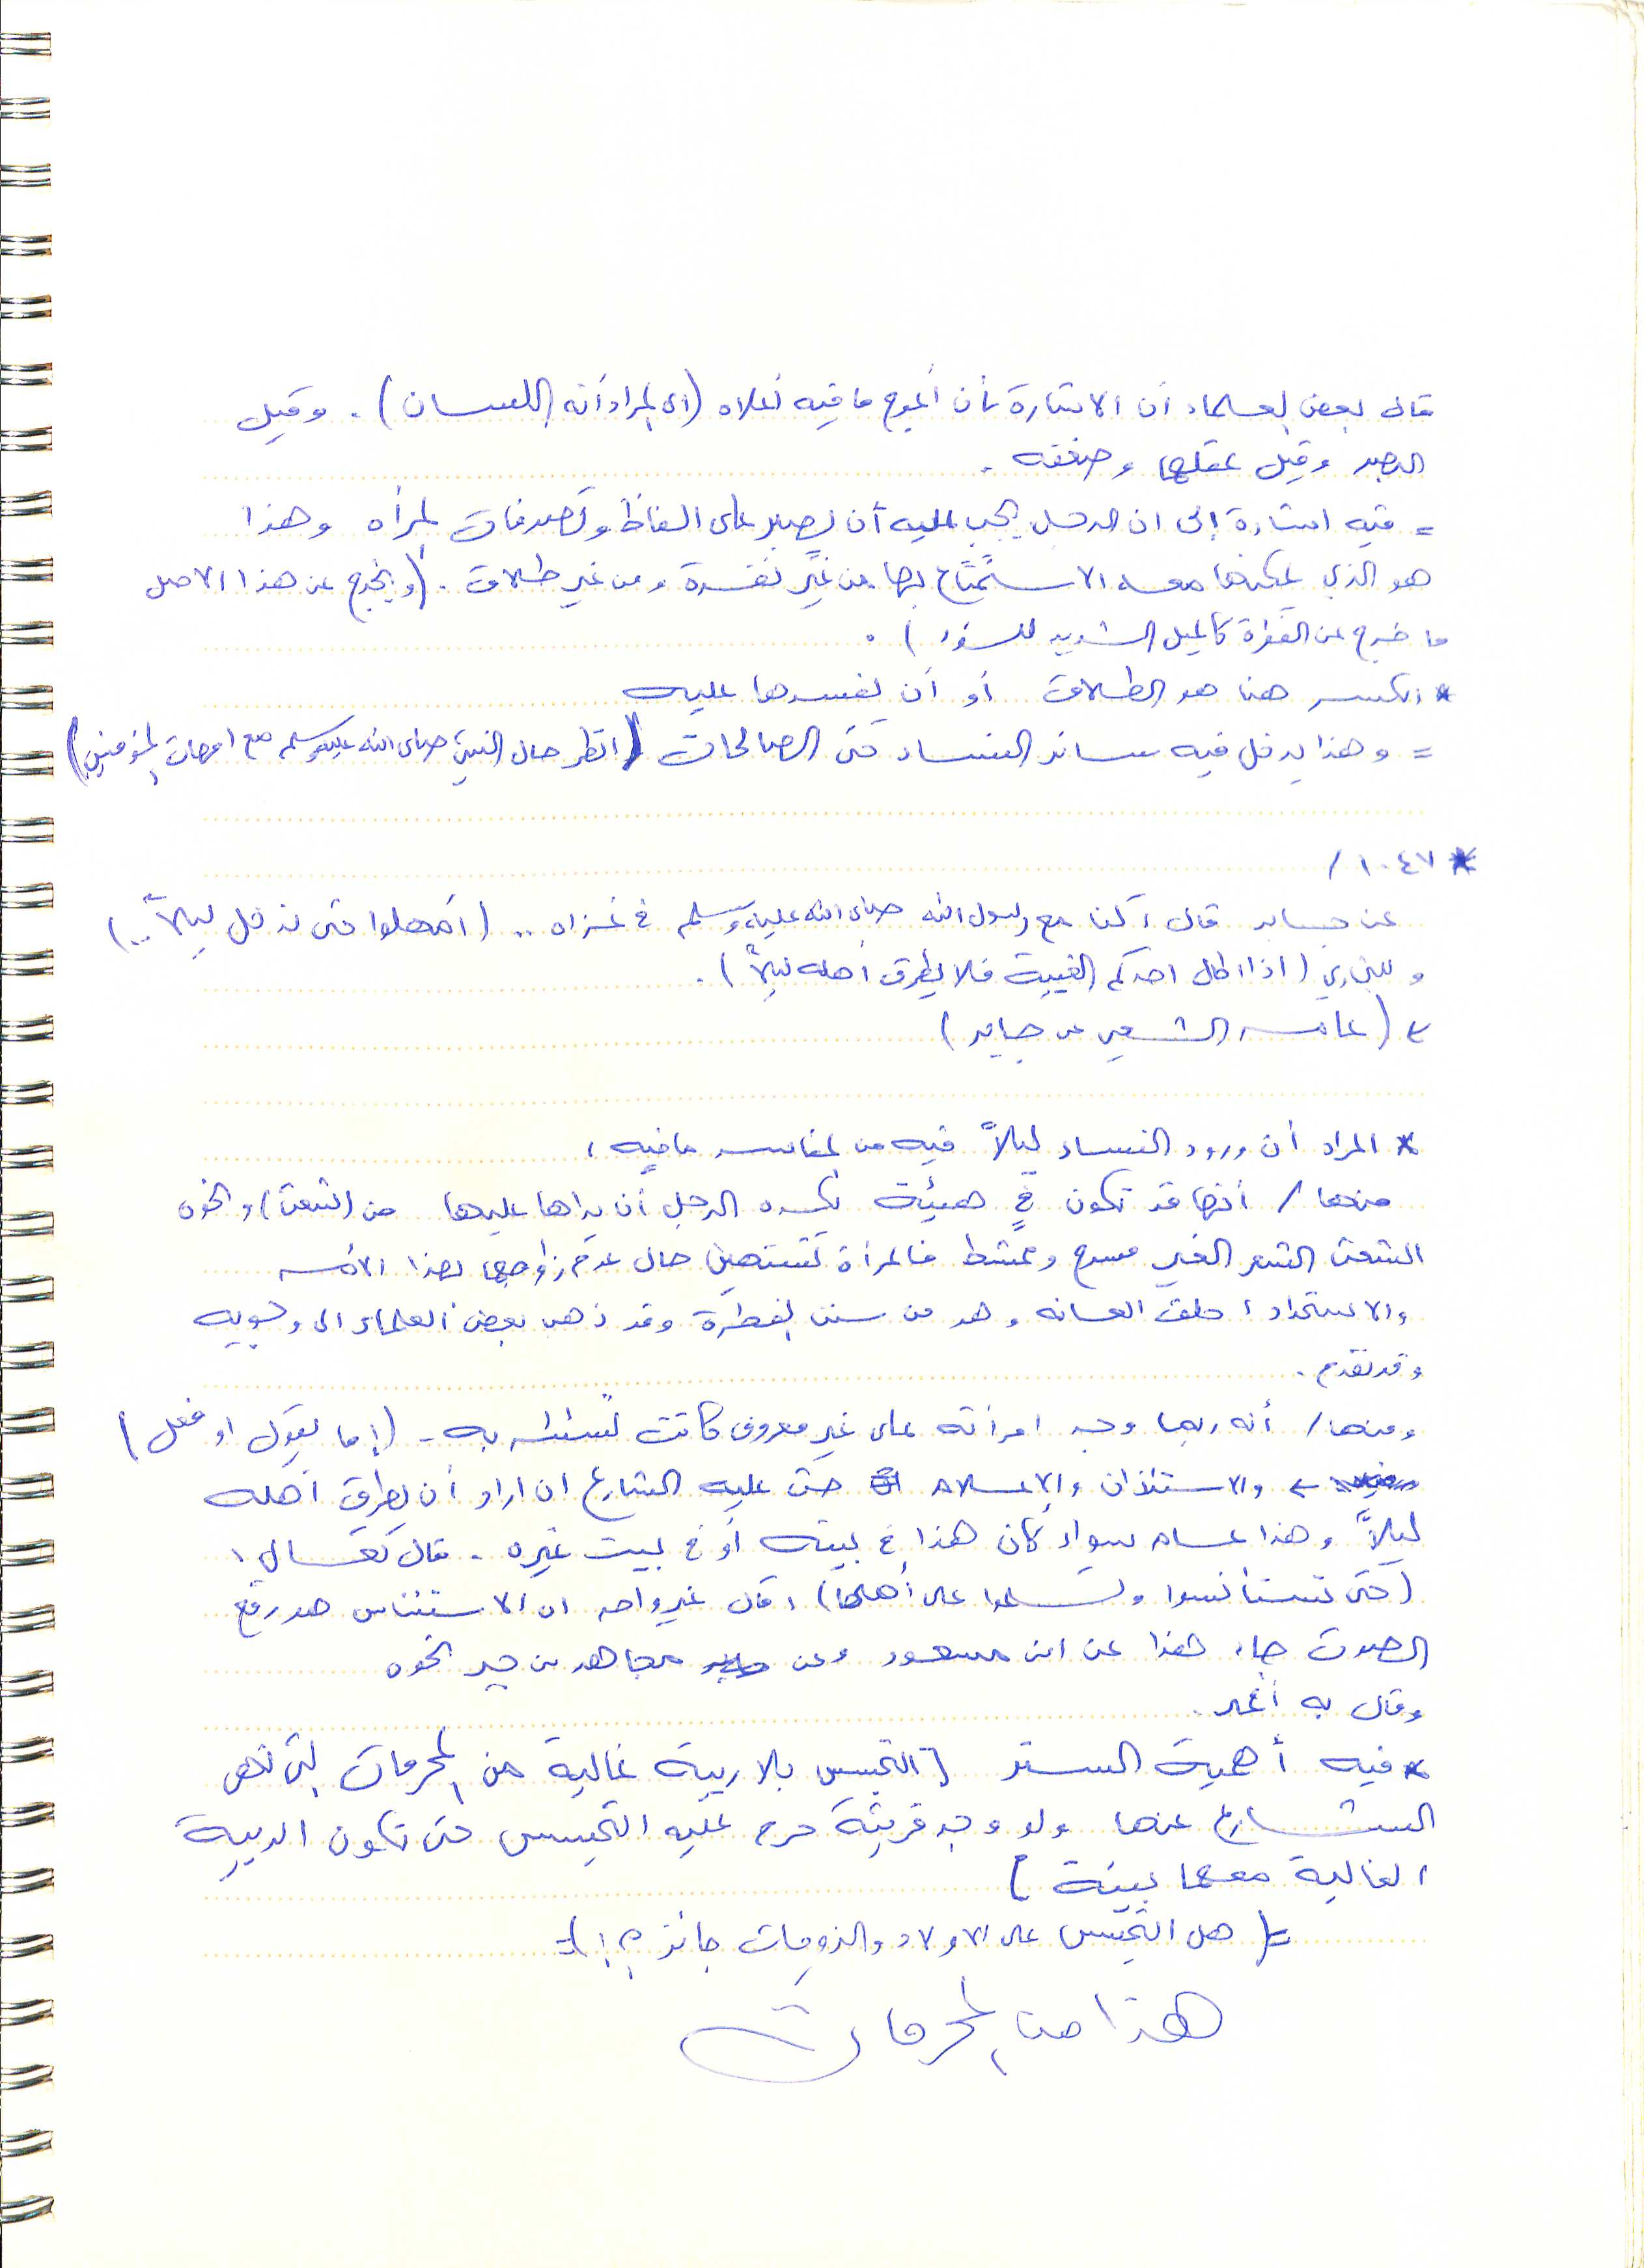 قال بعض العلماء ان الاشارة بأن أعوج ما فيه أعلاه (اي المراد أنه اللسان). وقيل
الصبر وقيل عقلها وضعفه .
= فيه اشارة إلى ان الرجل يجب عليه أن يصبر على الفاظ وتصرفات المرأه وهذا
هو الذي يمكنها معه الاستمتاع بها من غير نفرة ومن غير طلاق . (ويخرج عن هذا الاصل
ما خرج عن الفطرة كالميل الشديد للسوء ) .
* الكسر هنا هو الطلاق أو أن يفسدها عليه
= وهذا يدخل فيه سائر النساء حتى الصالحات (انظر حال النبي صلى الله عليه وسلم مع امهات المؤمنين)
* ١٠٤٧ /
عن جابر قال ، كنا مع رسول الله صلى الله عليه وسلم في غزاه .. ( أمهلوا حتى ندخل ليلاً ..)
وللبخاري ( اذا اطال احدكم الغيبة فلا يطرق أهله ليلاً ) .
< ( عامر الشعبي عن جابر )
* المراد أن ورود النساء ليلاً فيه من المفاسد ما فيه ،
منها / أنها قد تكون في هيئة يكره الرجل أن يراها عليها من (الشعث) والخوه
الشعث الشعر الغير مسرح وممشط فالمرأة تستهين حال عدم زواجها بهذا الأمر
والاستحداد ، حلق العانه وهو من سنن الفطرة وقد ذهب بعض العلماء الى وجوبه
وقد تقدم .
ومنها / أنه ربما وجد امرأته على غير معروف كانت تستتر به - (إما بقول او فعل )
< والاستئذان والإعلام حث عليه الشارع ان اراد أن يطرق أهله
ليلاً وهذا عام سواء كان هذا في بيته أو في بيت غيره . قال تعالى ،
(حتى تستأنسوا وتسلموا على أهلها) ، قال غير واحد ان الاستئناس هو رفع
الصوت جاء هذا عن ابن مسعود وعن مجاهد بن جبر الخوه
وقال به أحمد .
* فيه أهمية الستر [ التجسس بلا ريبة غالية من المحرمات التي نهى
الشارع عنها ولو وجد قرينة حرم عليه التجسس حتى تكون الريبة
الغالية معها بينة ]
=( هل التجسس على الاولاد والزوجات جائز ؟! )=
هذا من المحرمات